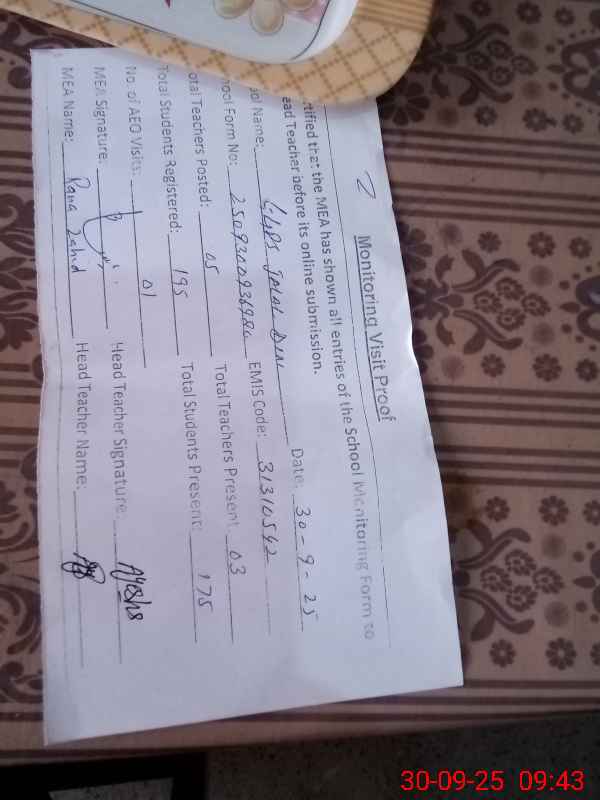 2
Monitoring Visit Proof
rtified that the MEA has shown all entries of the School Monitoring Form to
ead Teacher before its online submission.
Date: 30-9-25
ool Name: GGPS Jalal Din
hool Form No: EMIS Code: 31310542
otal Teachers Posted: 05 Total Teachers Present: 03
Total Students Registered: 195 Total Students Present: 175
No. of AEO Visits: 01
MEA Signature: Head Teacher Signature: Ayesha
MEA Name: Rana Zahid Head Teacher Name:
30-09-25 09:43